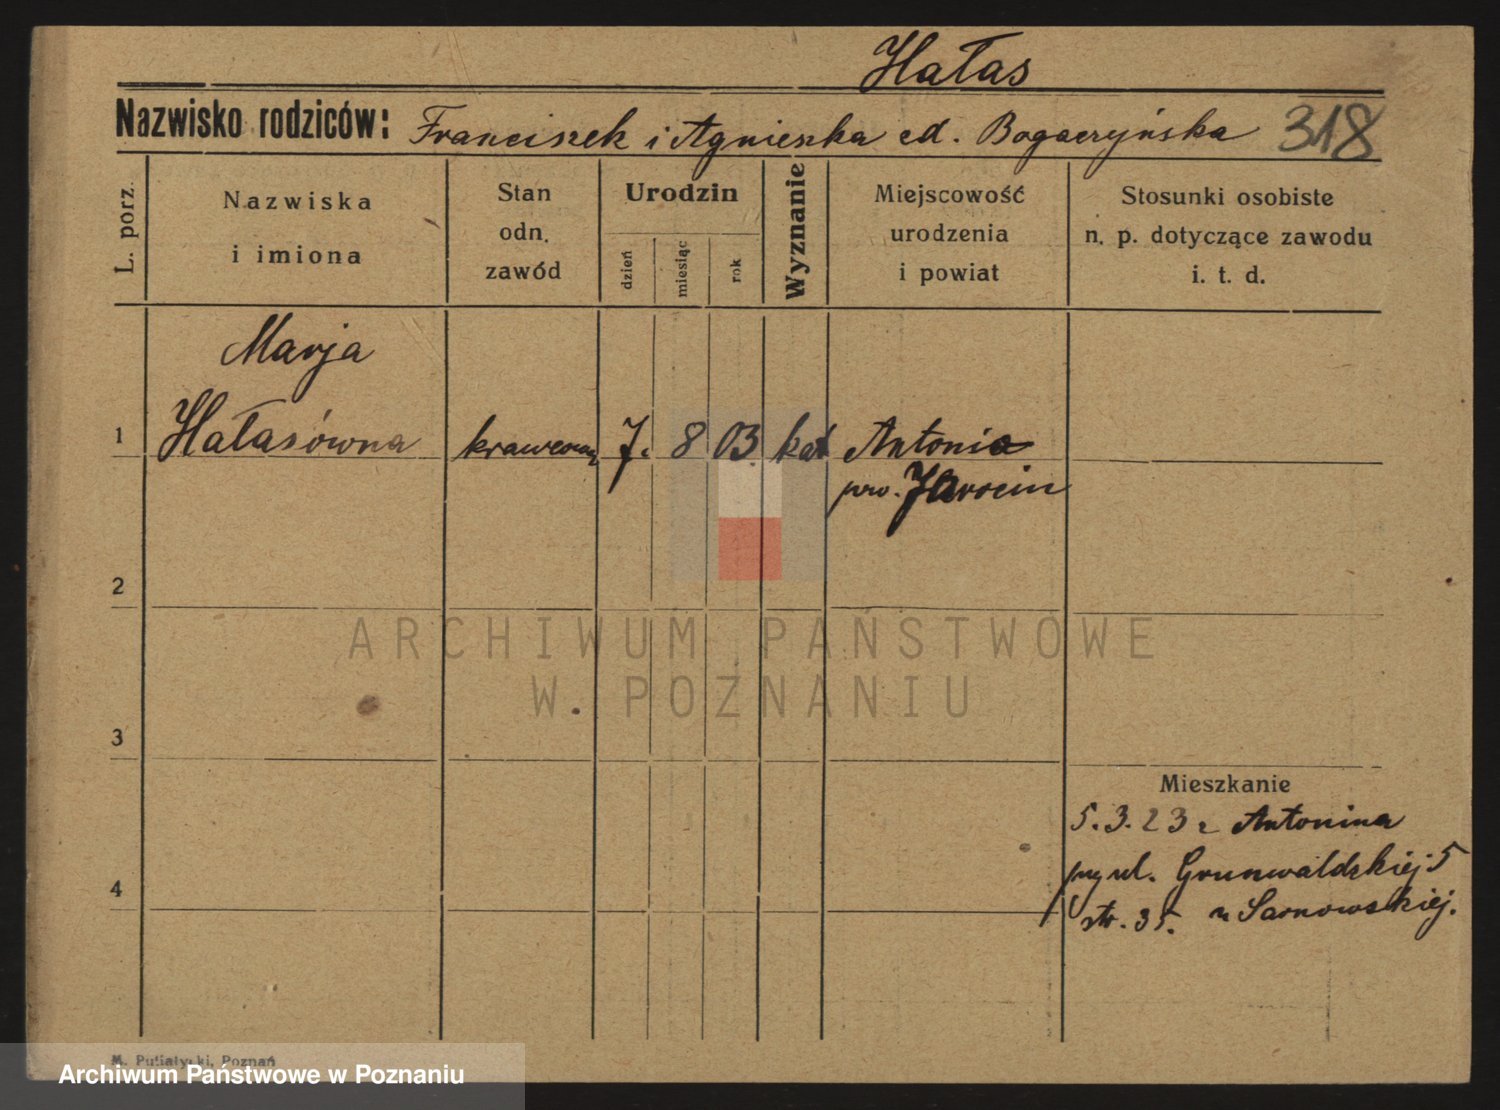 Hałas
Nazwisko rodziców: Franciszek i Agnieszka cd. Bogaczyńska 318
L. porz.
Nazwiska
i imiona
Stan
odn.
zawód
Urodzin
dzień
miesiąc
rok
Wyznanie
Miejscowość
urodzenia
i powiat
Stosunki osobiste
n. p. dotyczące zawodu
i. t. d.
Marja
1 Hałasówna 7. 8 03. kat Antonin
pow. Jarocin
2
ARCHIWUM PAŃSTWOWE
W POZNANIU
3
Mieszkanie
5.3.23 z Antonina
przy ul. Grunwaldzkiej 5
4
str. 35. u Sarnowskiej.
M. Putiatycki, Poznań
Archiwum Państwowe w Poznaniu